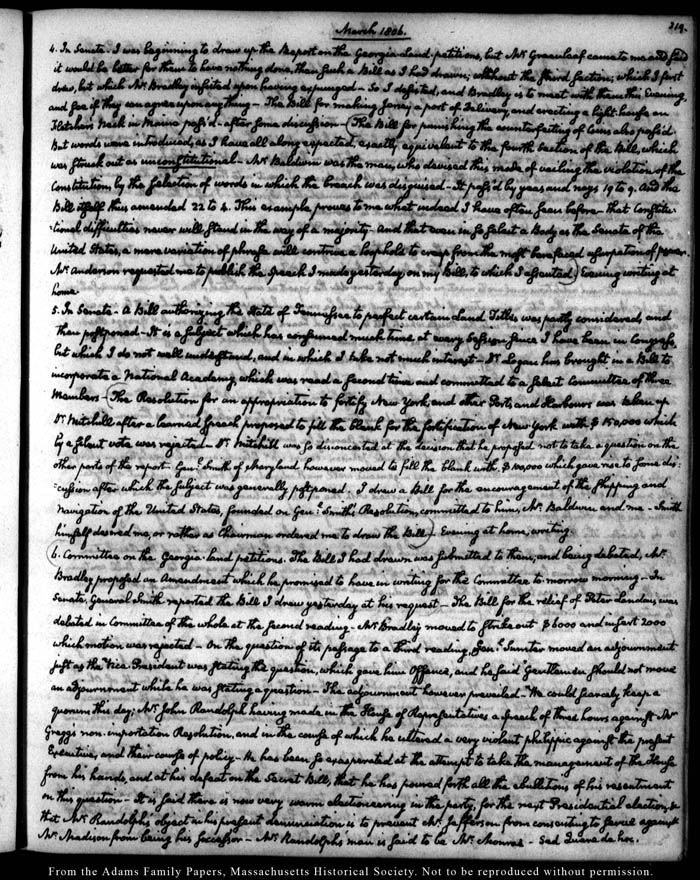 March 1806.
219.
4. In Senate. I was beginning to draw up the Report on the Georgia-land-petitions, but Mr Greenleaf came to me and said
it would be better for them to have nothing done, than such a Bill as I had drawn, without the third section; which I first
drew, but which Mr Bradley insisted upon having expunged — So I desisted, and Bradley is to meet with them this Evening,
and see if they can agree upon any thing — The Bill for making Jersey a port of Delivery, and erecting a light-house on
Fletcher's Neck in Maine pass'd — after some discussion — (The Bill for punishing the counterfeiting of Coins also pass'd.
But words were introduced, as I have all along expected, exactly equivalent to the fourth Section of the Bill, which
was struck out as unconstitutional — Mr Baldwin was the man, who devised this mode of veiling the violation of the
Constitution, by the selection of words in which the breach was disguised — It pass'd by yeas and nays 19 to 9. And the
Bill itself thus amended 22 to 4. This example proves to me what indeed I have often seen before — that Constitu-
-tional difficulties never will stand in the way of a majority — And that even in so select a Body as the Senate of the
United States, a mere variation of phrase will contrive a loophold to creep from the most barefaced usurpation of power.
Mr Anderson requested me to publish the Speech I made yesterday, on my Bill, to which I assented) Evening writing at
home.
5. In Senate — A Bill authorizing the State of Tennessee to perfect certain land Titles was partly considered, and
then postponed — It is a subject which has consumed much time at every Session since I have been in Congress,
but which I do not well understand, and in which I take not much interest — Dr Logan has brought in a Bill to
incorporate a National Academy, which was read a second time and committed to a select Committee of three
Members — (The Resolution for an appropriation to fortify New York, and other Ports and Harbours was taken up
Dr Mitchill after a learned speech proposed to fill the blank for the fortification of New York with $ 150,000 which
by a silent vote was rejected — Dr Mitchill was so disconcerted at the decision that he proposed not to take a question on the
other parts of the report. Genl Smith of Maryland however moved to fill the blank with $ 100,000 which gave rise to some dis:
:cussion after which the subject was generally postponed. I drew a Bill for the encouragement of the shipping and
navigation of the United States, founded on Genl Smith's Resolution, committed to him, Mr Baldwin and me — Smith
himself desired me, or rather as Chairman ordered me to draw the Bill.) Evening at home, writing.
6. Committee on the Georgia-land petitions. The Bill I had drawn was submitted to them, and being debated, Mr
Bradley proposed an Amendment which he promised to have in writing for the Committee to morrow morning — In
Senate, General Smith reported the Bill I drew yesterday at his request — The Bill for the relief of Peter Landais, was
debated in Committee of the whole at the second reading — Mr Bradley moved to strike out $ 6000 and insert 2000
which motion was rejected — On the question of its passage to a third reading, Genl Sumter moved an adjournment
just as the Vice-President was stating the question, which gave him Offence, and he said Gentlemen should not move
an adjournment while he was stating a question — The adjournment however prevailed — We could scarcely keep a
quorum this day; Mr John Randolph having made in the House of Representatives a speech of three hours against Mr
Gregg's non-importation Resolution, and in the course of which he uttered a very violent philippic against the present
Executive, and their course of policy — He has been so exasperated at the attempt to take the management of the House
from his hands, and at his defeat on the Secret Bill, that he has poured forth all the ebullitions of his resentment
on this question — It is said there is now very warm electioneering in the party, for the next Presidential election, &
that Mr Randolph's object in his present denunciation is to prevent Mr Jefferson from consenting to serve again &
Mr Madison from being his successor — Mr Randolph's man is said to be Mr Monroe — Sed Quære de hoc.
From the Adams Family Papers, Massachusetts Historical Society. Not to be reproduced without permission.